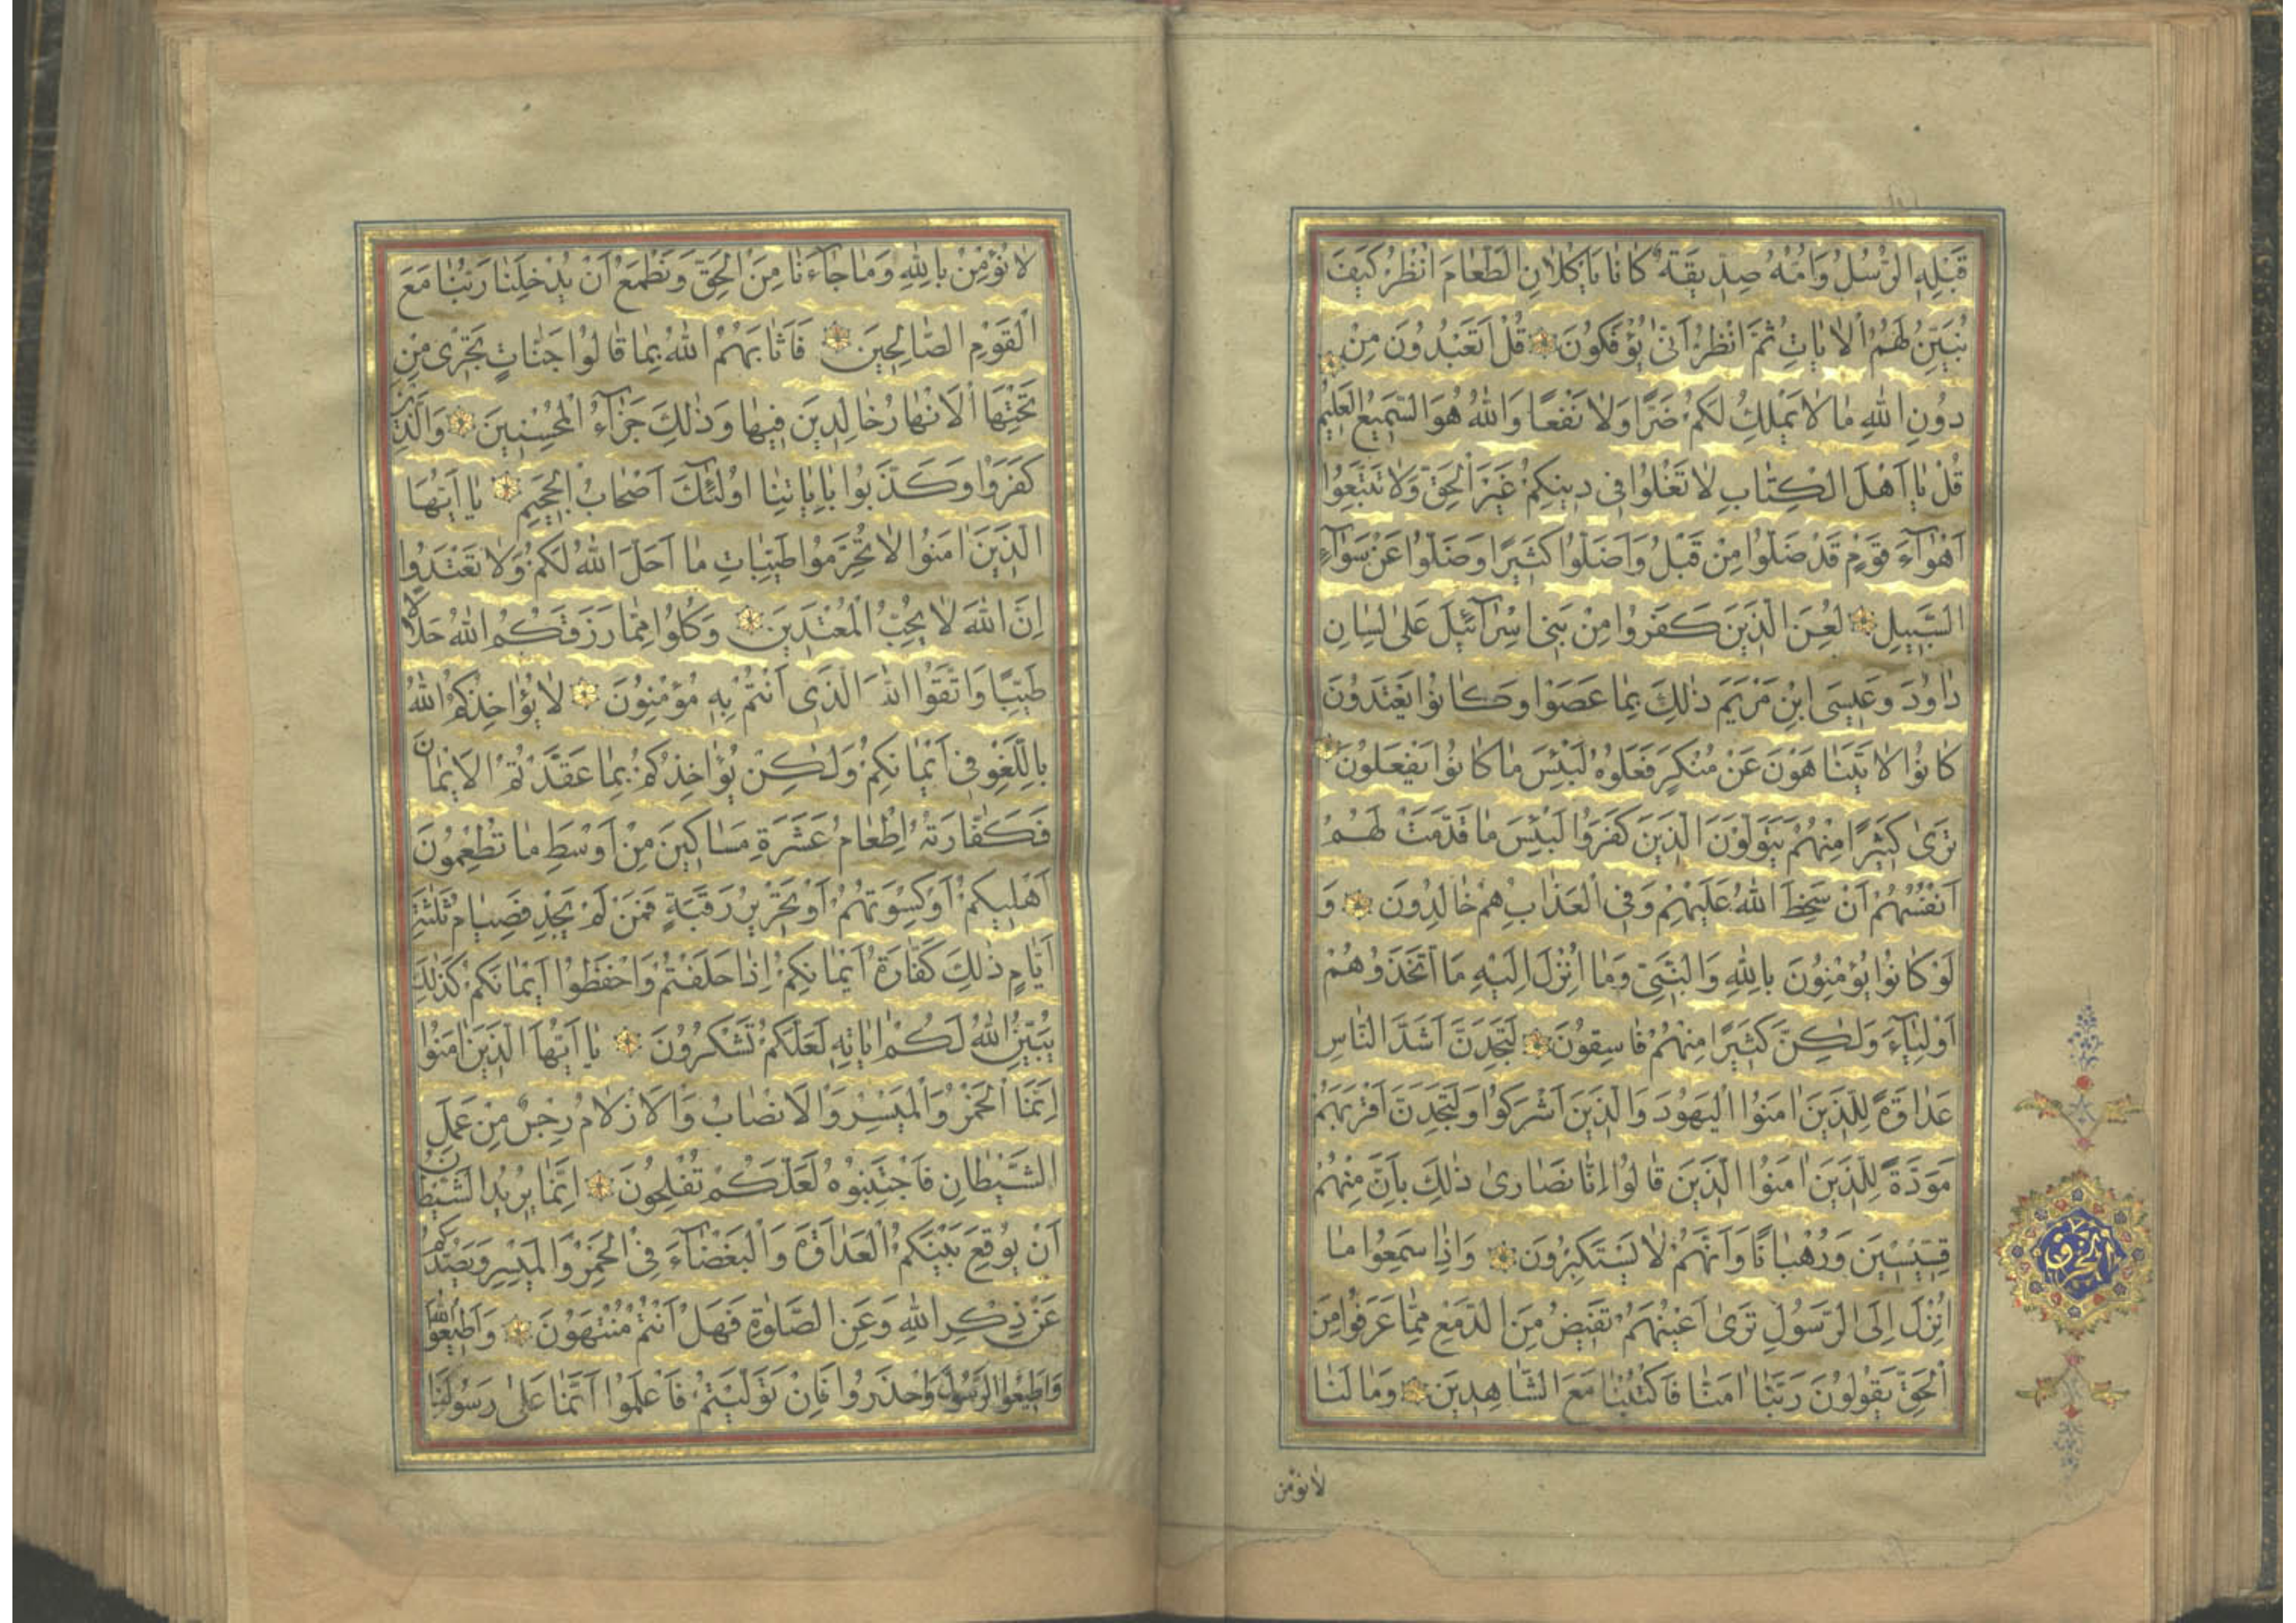 قَبْلِهِ الرُّسُلُ وَاُمُّهُ صِدِّيقَةٌ كَانَا يَاْكُلَانِ الطَّعَامَ اُنْظُرْ كَيْفَ
نُبَيِّنُ لَهُمُ الْاٰيَاتِ ثُمَّ انْظُرْ اَنّٰى يُؤْفَكُونَ قُلْ اَتَعْبُدُونَ مِنْ
دُونِ اللّٰهِ مَا لَا يَمْلِكُ لَكُمْ ضَرًّا وَلَا نَفْعًا وَاللّٰهُ هُوَ السَّمِيعُ الْعَلِيمُ
قُلْ يَا اَهْلَ الْكِتَابِ لَا تَغْلُوا فِى دِينِكُمْ غَيْرَ الْحَقِّ وَلَا تَتَّبِعُوا
اَهْوَاۤءَ قَوْمٍ قَدْ ضَلُّوا مِنْ قَبْلُ وَاَضَلُّوا كَثِيرًا وَضَلُّوا عَنْ سَوَاۤءِ
السَّبِيلِ لُعِنَ الَّذِينَ كَفَرُوا مِنْ بَنِى اِسْرَاۤئِيلَ عَلٰى لِسَانِ
دَاوُدَ وَعِيسَى ابْنِ مَرْيَمَ ذٰلِكَ بِمَا عَصَوْا وَكَانُوا يَعْتَدُونَ
كَانُوا لَا يَتَنَاهَوْنَ عَنْ مُنْكَرٍ فَعَلُوهُ لَبِئْسَ مَا كَانُوا يَفْعَلُونَ
تَرٰى كَثِيرًا مِنْهُمْ يَتَوَلَّوْنَ الَّذِينَ كَفَرُوا لَبِئْسَ مَا قَدَّمَتْ لَهُمْ
اَنْفُسُهُمْ اَنْ سَخِطَ اللّٰهُ عَلَيْهِمْ وَفِى الْعَذَابِ هُمْ خَالِدُونَ وَ
لَوْ كَانُوا يُؤْمِنُونَ بِاللّٰهِ وَالنَّبِىِّ وَمَا اُنْزِلَ اِلَيْهِ مَا اتَّخَذُوهُمْ
اَوْلِيَاۤءَ وَلٰكِنَّ كَثِيرًا مِنْهُمْ فَاسِقُونَ لَتَجِدَنَّ اَشَدَّ النَّاسِ
عَدَاوَةً لِلَّذِينَ اٰمَنُوا الْيَهُودَ وَالَّذِينَ اَشْرَكُوا وَلَتَجِدَنَّ اَقْرَبَهُمْ
مَوَدَّةً لِلَّذِينَ اٰمَنُوا الَّذِينَ قَالُوا اِنَّا نَصَارٰى ذٰلِكَ بِاَنَّ مِنْهُمْ
قِسِّيسِينَ وَرُهْبَانًا وَاَنَّهُمْ لَا يَسْتَكْبِرُونَ وَاِذَا سَمِعُوا مَا
اُنْزِلَ اِلَى الرَّسُولِ تَرٰى اَعْيُنَهُمْ تَفِيضُ مِنَ الدَّمْعِ مِمَّا عَرَفُوا مِنَ
الْحَقِّ يَقُولُونَ رَبَّنَا اٰمَنَّا فَاكْتُبْنَا مَعَ الشَّاهِدِينَ وَمَا لَنَا
لَا نُؤْمِنُ
لَا نُؤْمِنُ بِاللّٰهِ وَمَا جَاۤءَنَا مِنَ الْحَقِّ وَنَطْمَعُ اَنْ يُدْخِلَنَا رَبُّنَا مَعَ
الْقَوْمِ الصَّالِحِينَ فَاَثَابَهُمُ اللّٰهُ بِمَا قَالُوا جَنَّاتٍ تَجْرِى مِنْ
تَحْتِهَا الْاَنْهَارُ خَالِدِينَ فِيهَا وَذٰلِكَ جَزَاۤءُ الْمُحْسِنِينَ وَالَّذِينَ
كَفَرُوا وَكَذَّبُوا بِاٰيَاتِنَا اُولٰئِكَ اَصْحَابُ الْجَحِيمِ يَا اَيُّهَا
الَّذِينَ اٰمَنُوا لَا تُحَرِّمُوا طَيِّبَاتِ مَا اَحَلَّ اللّٰهُ لَكُمْ وَلَا تَعْتَدُوا
اِنَّ اللّٰهَ لَا يُحِبُّ الْمُعْتَدِينَ وَكُلُوا مِمَّا رَزَقَكُمُ اللّٰهُ حَلَالًا
طَيِّبًا وَاتَّقُوا اللّٰهَ الَّذِى اَنْتُمْ بِهِ مُؤْمِنُونَ لَا يُؤَاخِذُكُمُ اللّٰهُ
بِاللَّغْوِ فِى اَيْمَانِكُمْ وَلٰكِنْ يُؤَاخِذُكُمْ بِمَا عَقَّدْتُمُ الْاَيْمَانَ
فَكَفَّارَتُهُ اِطْعَامُ عَشَرَةِ مَسَاكِينَ مِنْ اَوْسَطِ مَا تُطْعِمُونَ
اَهْلِيكُمْ اَوْ كِسْوَتُهُمْ اَوْ تَحْرِيرُ رَقَبَةٍ فَمَنْ لَمْ يَجِدْ فَصِيَامُ ثَلٰثَةِ
اَيَّامٍ ذٰلِكَ كَفَّارَةُ اَيْمَانِكُمْ اِذَا حَلَفْتُمْ وَاحْفَظُوا اَيْمَانَكُمْ كَذٰلِكَ
يُبَيِّنُ اللّٰهُ لَكُمْ اٰيَاتِهِ لَعَلَّكُمْ تَشْكُرُونَ يَا اَيُّهَا الَّذِينَ اٰمَنُوا
اِنَّمَا الْخَمْرُ وَالْمَيْسِرُ وَالْاَنْصَابُ وَالْاَزْلَامُ رِجْسٌ مِنْ عَمَلِ
الشَّيْطَانِ فَاجْتَنِبُوهُ لَعَلَّكُمْ تُفْلِحُونَ اِنَّمَا يُرِيدُ الشَّيْطَانُ
اَنْ يُوقِعَ بَيْنَكُمُ الْعَدَاوَةَ وَالْبَغْضَاۤءَ فِى الْخَمْرِ وَالْمَيْسِرِ وَيَصُدَّكُمْ
عَنْ ذِكْرِ اللّٰهِ وَعَنِ الصَّلٰوةِ فَهَلْ اَنْتُمْ مُنْتَهُونَ وَاَطِيعُوا اللّٰهَ
وَاَطِيعُوا الرَّسُولَ وَاحْذَرُوا فَاِنْ تَوَلَّيْتُمْ فَاعْلَمُوا اَنَّمَا عَلٰى رَسُولِنَا